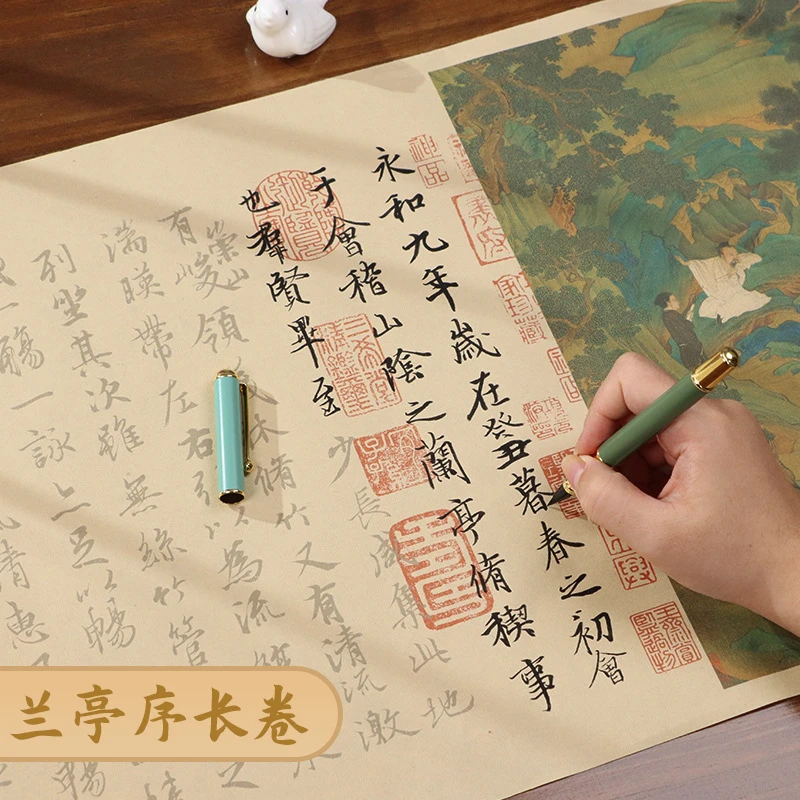 永和九年歲在癸丑暮春之初會
于會稽山陰之蘭亭脩稧事
也羣賢畢至少長咸集此地
有崇山峻領茂林脩竹又有清流激
湍暎帶左右引以為流觴曲水
列坐其次雖無絲竹管弦之
一觴一詠亦足以暢
清惠風
神品
兰亭序长卷